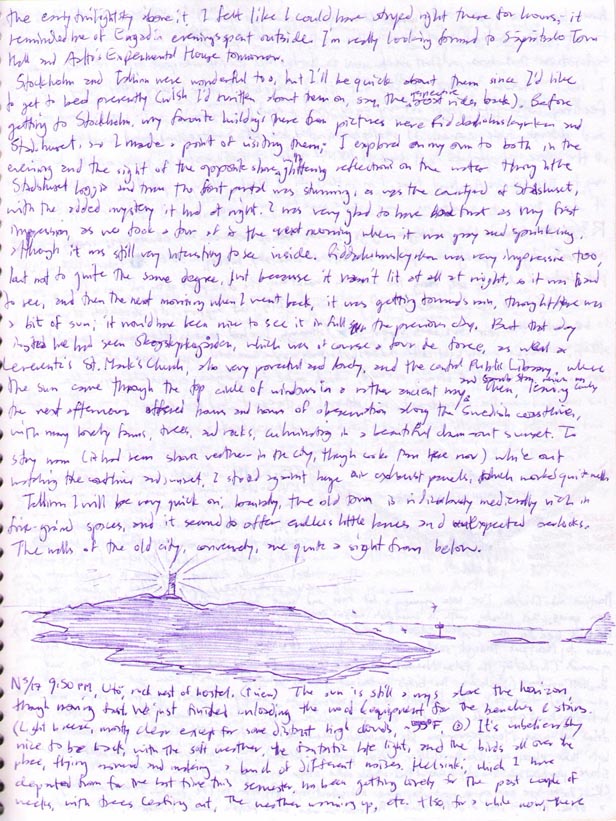 the early twilight sky above it, I felt like I could have stayed right there for hours; it
reminded me of Engadin evenings spent outside. I'm really looking forward to Säynätsalo Town
Hall and Aalto's Experimental House tomorrow.
Stockholm and Tallinn were wonderful too, but I'll be quick about them since I'd like
to get to bed presently (wish I'd written about them on, say, the respective rides back). Before
getting to Stockholm, my favorite buildings there from pictures were Riddarholmskyrkan and
Stadshuset, so I made a point of visiting them; I explored on my own to both in the
evening and the sight of the opposite shore's glittering reflections on the water through the
Stadshuset loggia and from the foot portal was stunning, as was the courtyard of Stadshuset,
with the added mystery it had at night. I was very glad to have had that as my first
impression, as we took a tour of it the next morning when it was gray and sprinkling,
although it was still very interesting to see inside. Riddarholmskyrkan was very impressive too,
but not to quite the same degree, just because it wasn't lit at all at night, so it was hard
to see, and then the next morning when I went back, it was getting towards rain, though there was
a bit of sun; it would have been nice to see it in full sun the previous day. But that day
instead we had seen Skogskyrkogården, which was of course a tour de force, as well as
Lewerentz's St. Mark's Church, also very powerful and lovely, and the central Public Library, where
the sun came through the top circle of windows in a rather ancient way. Then, leaving early
and
the next afternoon offered hours and hours of observation along the Swedish coastline,
with many lovely farms, trees, and rocks, culminating in a beautiful drawn-out sunset. To
stay warm (it had been warm weather in the city, though cooler than here now) while out
watching the coastline and sunset, I stood against huge air exhaust panels, which worked quite well.
Tallinn I will be very quick on; basically, the old town is ridiculously medievally rich in
fine-grained spaces, and it seemed to offer endless little lanes and unexpected overlooks.
The walls of the old city, conversely, are quite a sight from below.
9:50 PM, Utö, rock west of hostel. The sun is still a ways above the horizon,
though moving fast. We just finished unloading the wood & equipment for the benches & stairs.
(Light breeze, mostly clear except for some distant high clouds, ~55°F.) It's unbelievably
nice to be back, with the soft weather, the fantastic late light, and the birds all over the
place, flying around and making a bunch of different noises. Helsinki, which I have
departed from for the last time this semester, has been getting lovely for the past couple of
weeks, with trees leafing out, the weather warming up, etc. Also, for a while now, there